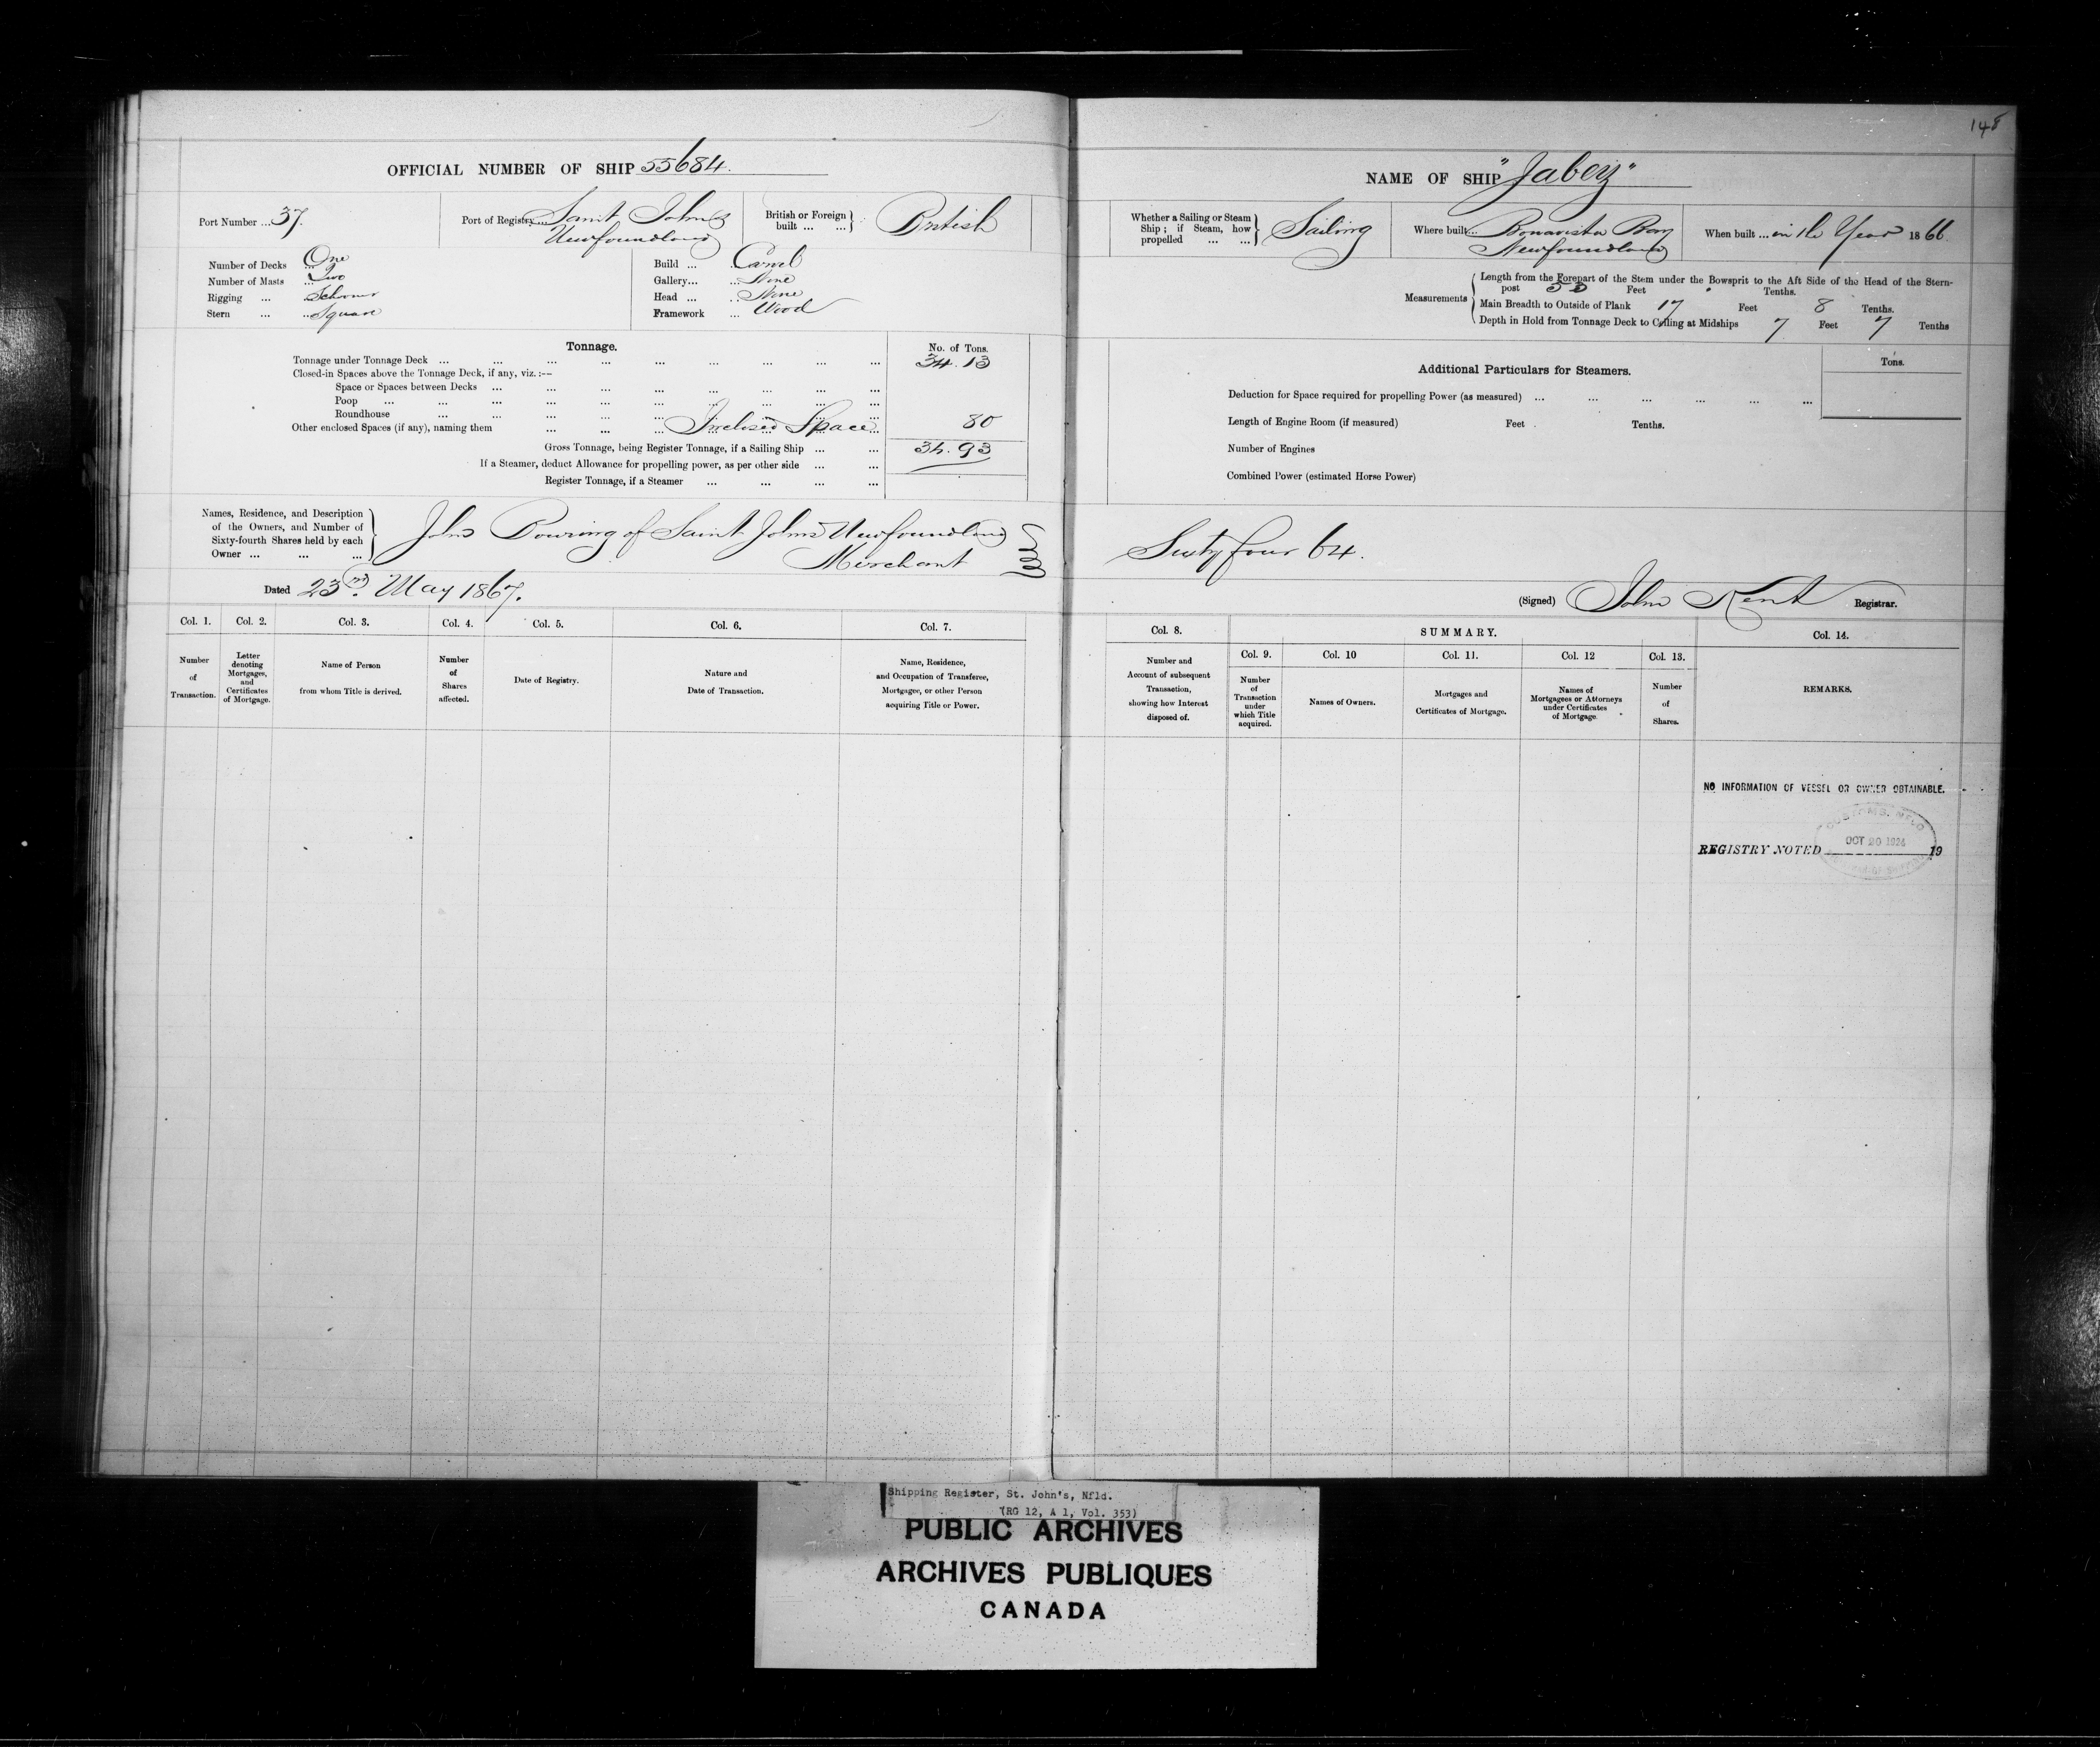 148
OFFICIAL NUMBER OF SHIP 55684.
Port Number ... 37.
Port of Registry ... Saint Johns
Newfoundland
British or Foreign built ... ... British
Number of Decks One
Number of Masts ... Two
Rigging ... Schooner
Stern ... ... Square
Build ... Carvel
Gallery... ... None
Head ... ... None
Framework ... Wood
Tonnage.
No. of Tons.
Tonnage under Tonnage Deck ... ... ... ... ... ... ... ... 34.13
Closed-in Spaces above the Tonnage Deck, if any, viz. :—
Space or Spaces between Decks ... ... ... ... ... ... ... ...
Poop ... ... ... ... ... ... ... ... ...
Roundhouse ... ... ... ... ... ... ... ...
Other enclosed Spaces (if any), naming them ... ... ... Inclosed Space ... 80
Gross Tonnage, being Register Tonnage, if a Sailing Ship ... ... 34.93
If a Steamer, deduct Allowance for propelling power, as per other side ... ...
Register Tonnage, if a Steamer ... ... ... ...
Names, Residence, and Description
of the Owners, and Number of
Sixty-fourth Shares held by each
Owner ... ... ...
John Bowring of Saint Johns Newfoundland
Merchant
Dated 23rd. May 1867.
Col. 1. Col. 2. Col. 3. Col. 4. Col. 5. Col. 6. Col. 7.
Number
of
Transaction.
Letter
denoting
Mortgages,
and
Certificates
of Mortgage.
Name of Person
from whom Title is derived.
Number
of
Shares
affected.
Date of Registry.
Nature and
Date of Transaction.
Name, Residence,
and Occupation of Transferee,
Mortgagee, or other Person
acquiring Title or Power.
NAME OF SHIP "Jabez"
Whether a Sailing or Steam
Ship ; if Steam, how
propelled ... ...
Sailing
Where built ... Bonavista Bay
Newfoundland
When built ... in the Year 1866.
Measurements
Length from the Forepart of the Stem under the Bowsprit to the Aft Side of the Head of the Stern-
post Feet Tenths.
Main Breadth to Outside of Plank 17 Feet 8 Tenths.
Depth in Hold from Tonnage Deck to Ceiling at Midships 7 Feet 7 Tenths
Additional Particulars for Steamers.
Tons.
Deduction for Space required for propelling Power (as measured) ... ... ... ... ... ...
Length of Engine Room (if measured) Feet . Tenths.
Number of Engines
Combined Power (estimated Horse Power)
Sixty four 64.
(Signed) John Kent Registrar.
Col. 8.
SUMMARY.
Col. 14.
Col. 9. Col. 10 Col. 11. Col. 12 Col. 13.
Number and
Account of subsequent
Transaction,
showing how Interest
disposed of.
Number
of
Transaction
under
which Title
acquired.
Names of Owners.
Mortgages and
Certificates of Mortgage.
Names of
Mortgagees or Attorneys
under Certificates
of Mortgage.
Number
of
Shares.
REMARKS.
NO INFORMATION OF VESSEL OR OWNER OBTAINABLE.
CUSTOMS. NFLD
OCT 20 1924
REGISTRY NOTED 19
Shipping Register, St. John's, Nfld.
(RG 12, A 1, Vol. 353)
PUBLIC ARCHIVES
ARCHIVES PUBLIQUES
CANADA